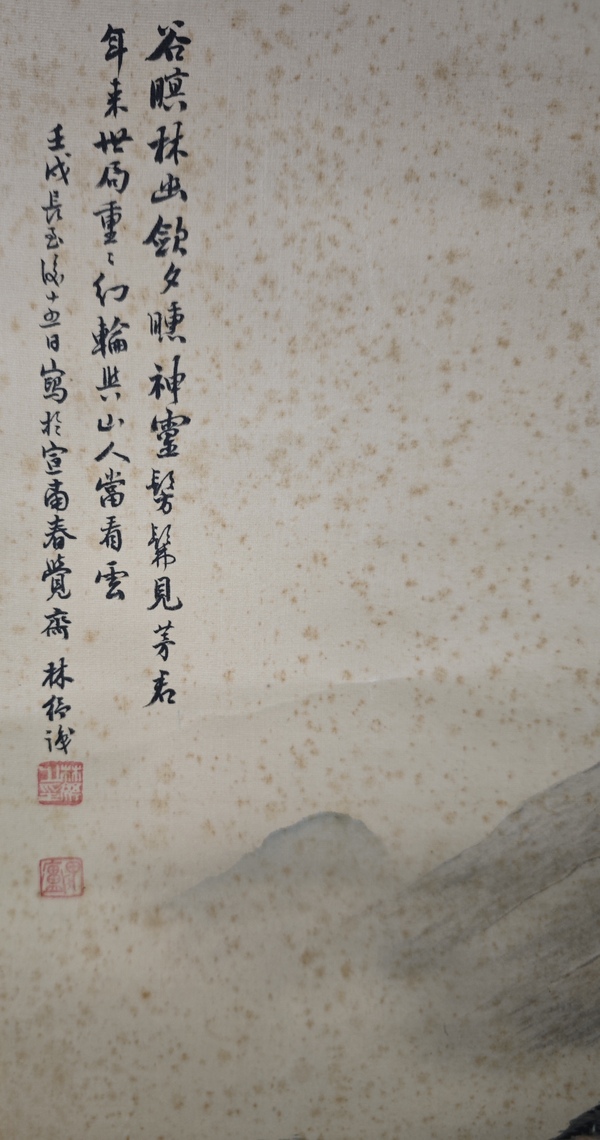 谷暝林幽歛夕曛神靈髣髴見茅君
年来世局重〻幻輪與山人當看雲
壬戌長至後十五日寫於宣南春覺齋 林紓識
林紓之印
畏廬